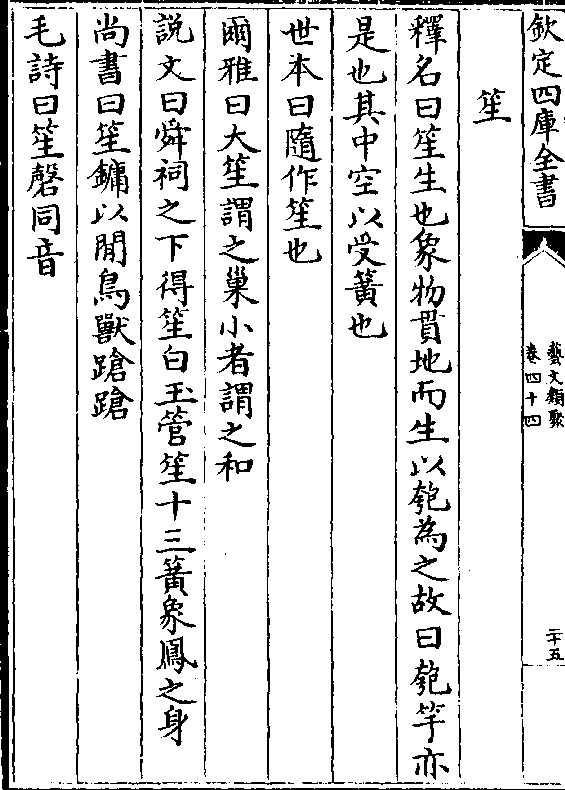 欽定四庫全書
藝文類聚
卷四十四
二十五
笙
釋名曰笙生也象物貫地而生以匏為之故曰匏竽亦
是也其中空以受簧也
世本曰隨作笙也
爾雅曰大笙謂之巢小者謂之和
說文曰舜祠之下得笙白玉管笙十三簧象鳳之身
尚書曰笙鏞以閒鳥獸蹌蹌
毛詩曰笙磬同音